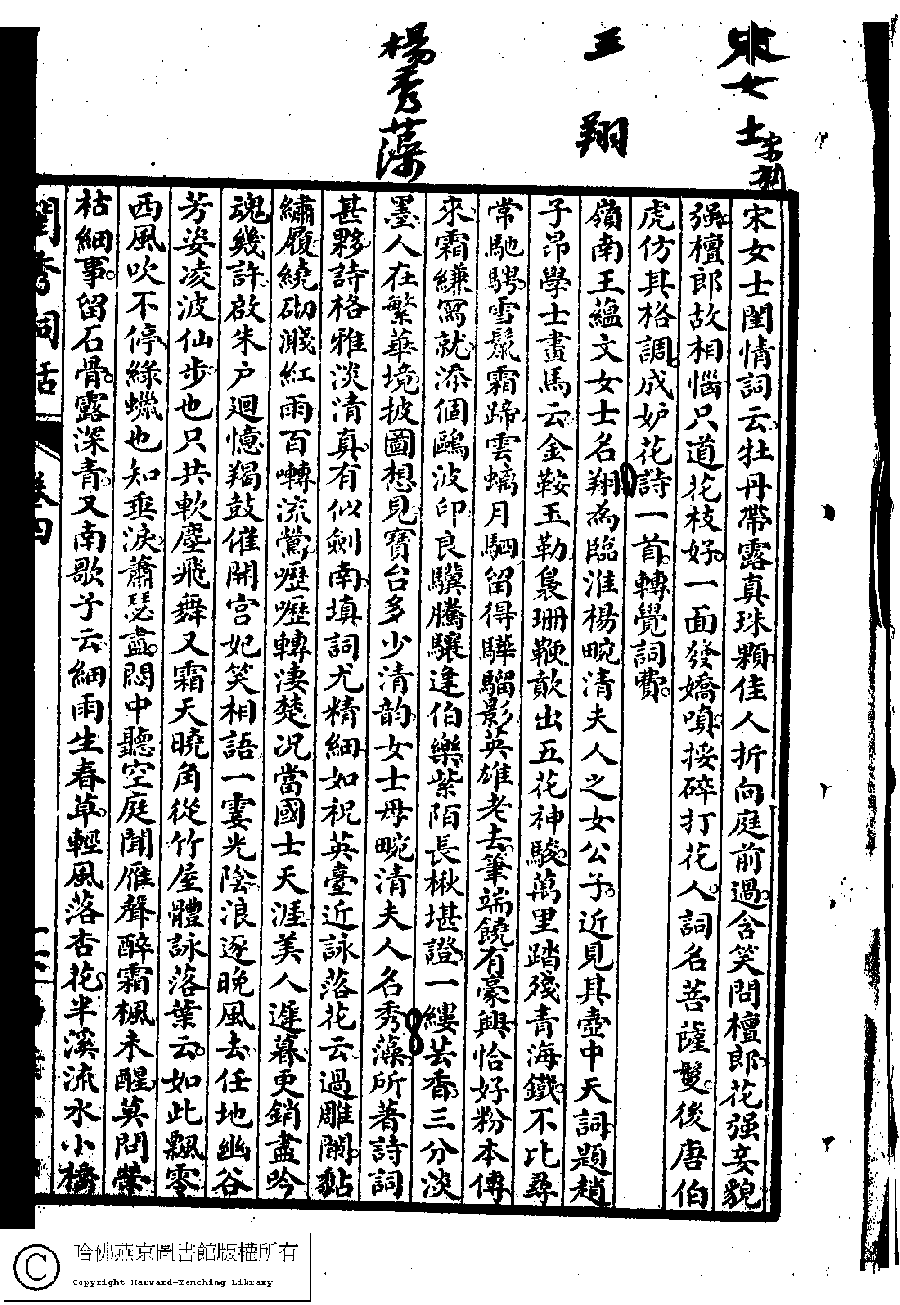 宋女士
王翔
楊秀藻
宋女士閨情詞云牡丹帶露真珠顆佳人折向庭前過含笑問檀郎花强妾貌
强檀郎故相惱只道花枝好一面發嬌嗔挼碎打花人詞名菩薩鬘後唐伯
虎仿其格調成妒花詩一首轉覺詞費
嶺南王蘊文女士名翔為臨淮楊畹清夫人之女公子近見其壺中天詞題趙
子昂學士畫馬云金鞍玉勒裊珊鞭欹出五花神駿萬里踏殘青海鐵不比尋
常馳騁雪鬣霜蹄雲螭月駟留得驊騮影英雄老去筆端饒有豪興恰好粉本傳
來霜縑寫就添個鷗波印良驥騰驤逢伯樂紫陌長楸堪證一縷芸香三分淡
墨人在繁華境披圖想見寶台多少清韵女士母畹清夫人名秀藻所著詩詞
甚夥詩格雅淡清真有似劍南填詞尤精細如祝英臺近詠落花云過雕闌黏
繡履繞砌濺紅雨百囀流鶯嚦嚦轉淒楚况當國士天涯美人遲暮更銷盡吟
魂幾許啟朱戶迴憶羯鼓催開宮妃笑相語一霎光陰浪逐晚風去任地幽谷
芳姿凌波仙步也只共軟塵飛舞又霜天曉角從竹屋體詠落葉云如此飄零
西風吹不停綠蠟也知垂淚蕭瑟盡悶中聽空庭聞雁聲醉霜楓未醒莫問榮
枯細事留石骨露深青又南歌子云細雨生春草輕風落杏花半溪流水小橋
閨秀詞話
卷四
哈佛燕京圖書館版權所有
Copyright Harvard-Yenching Library